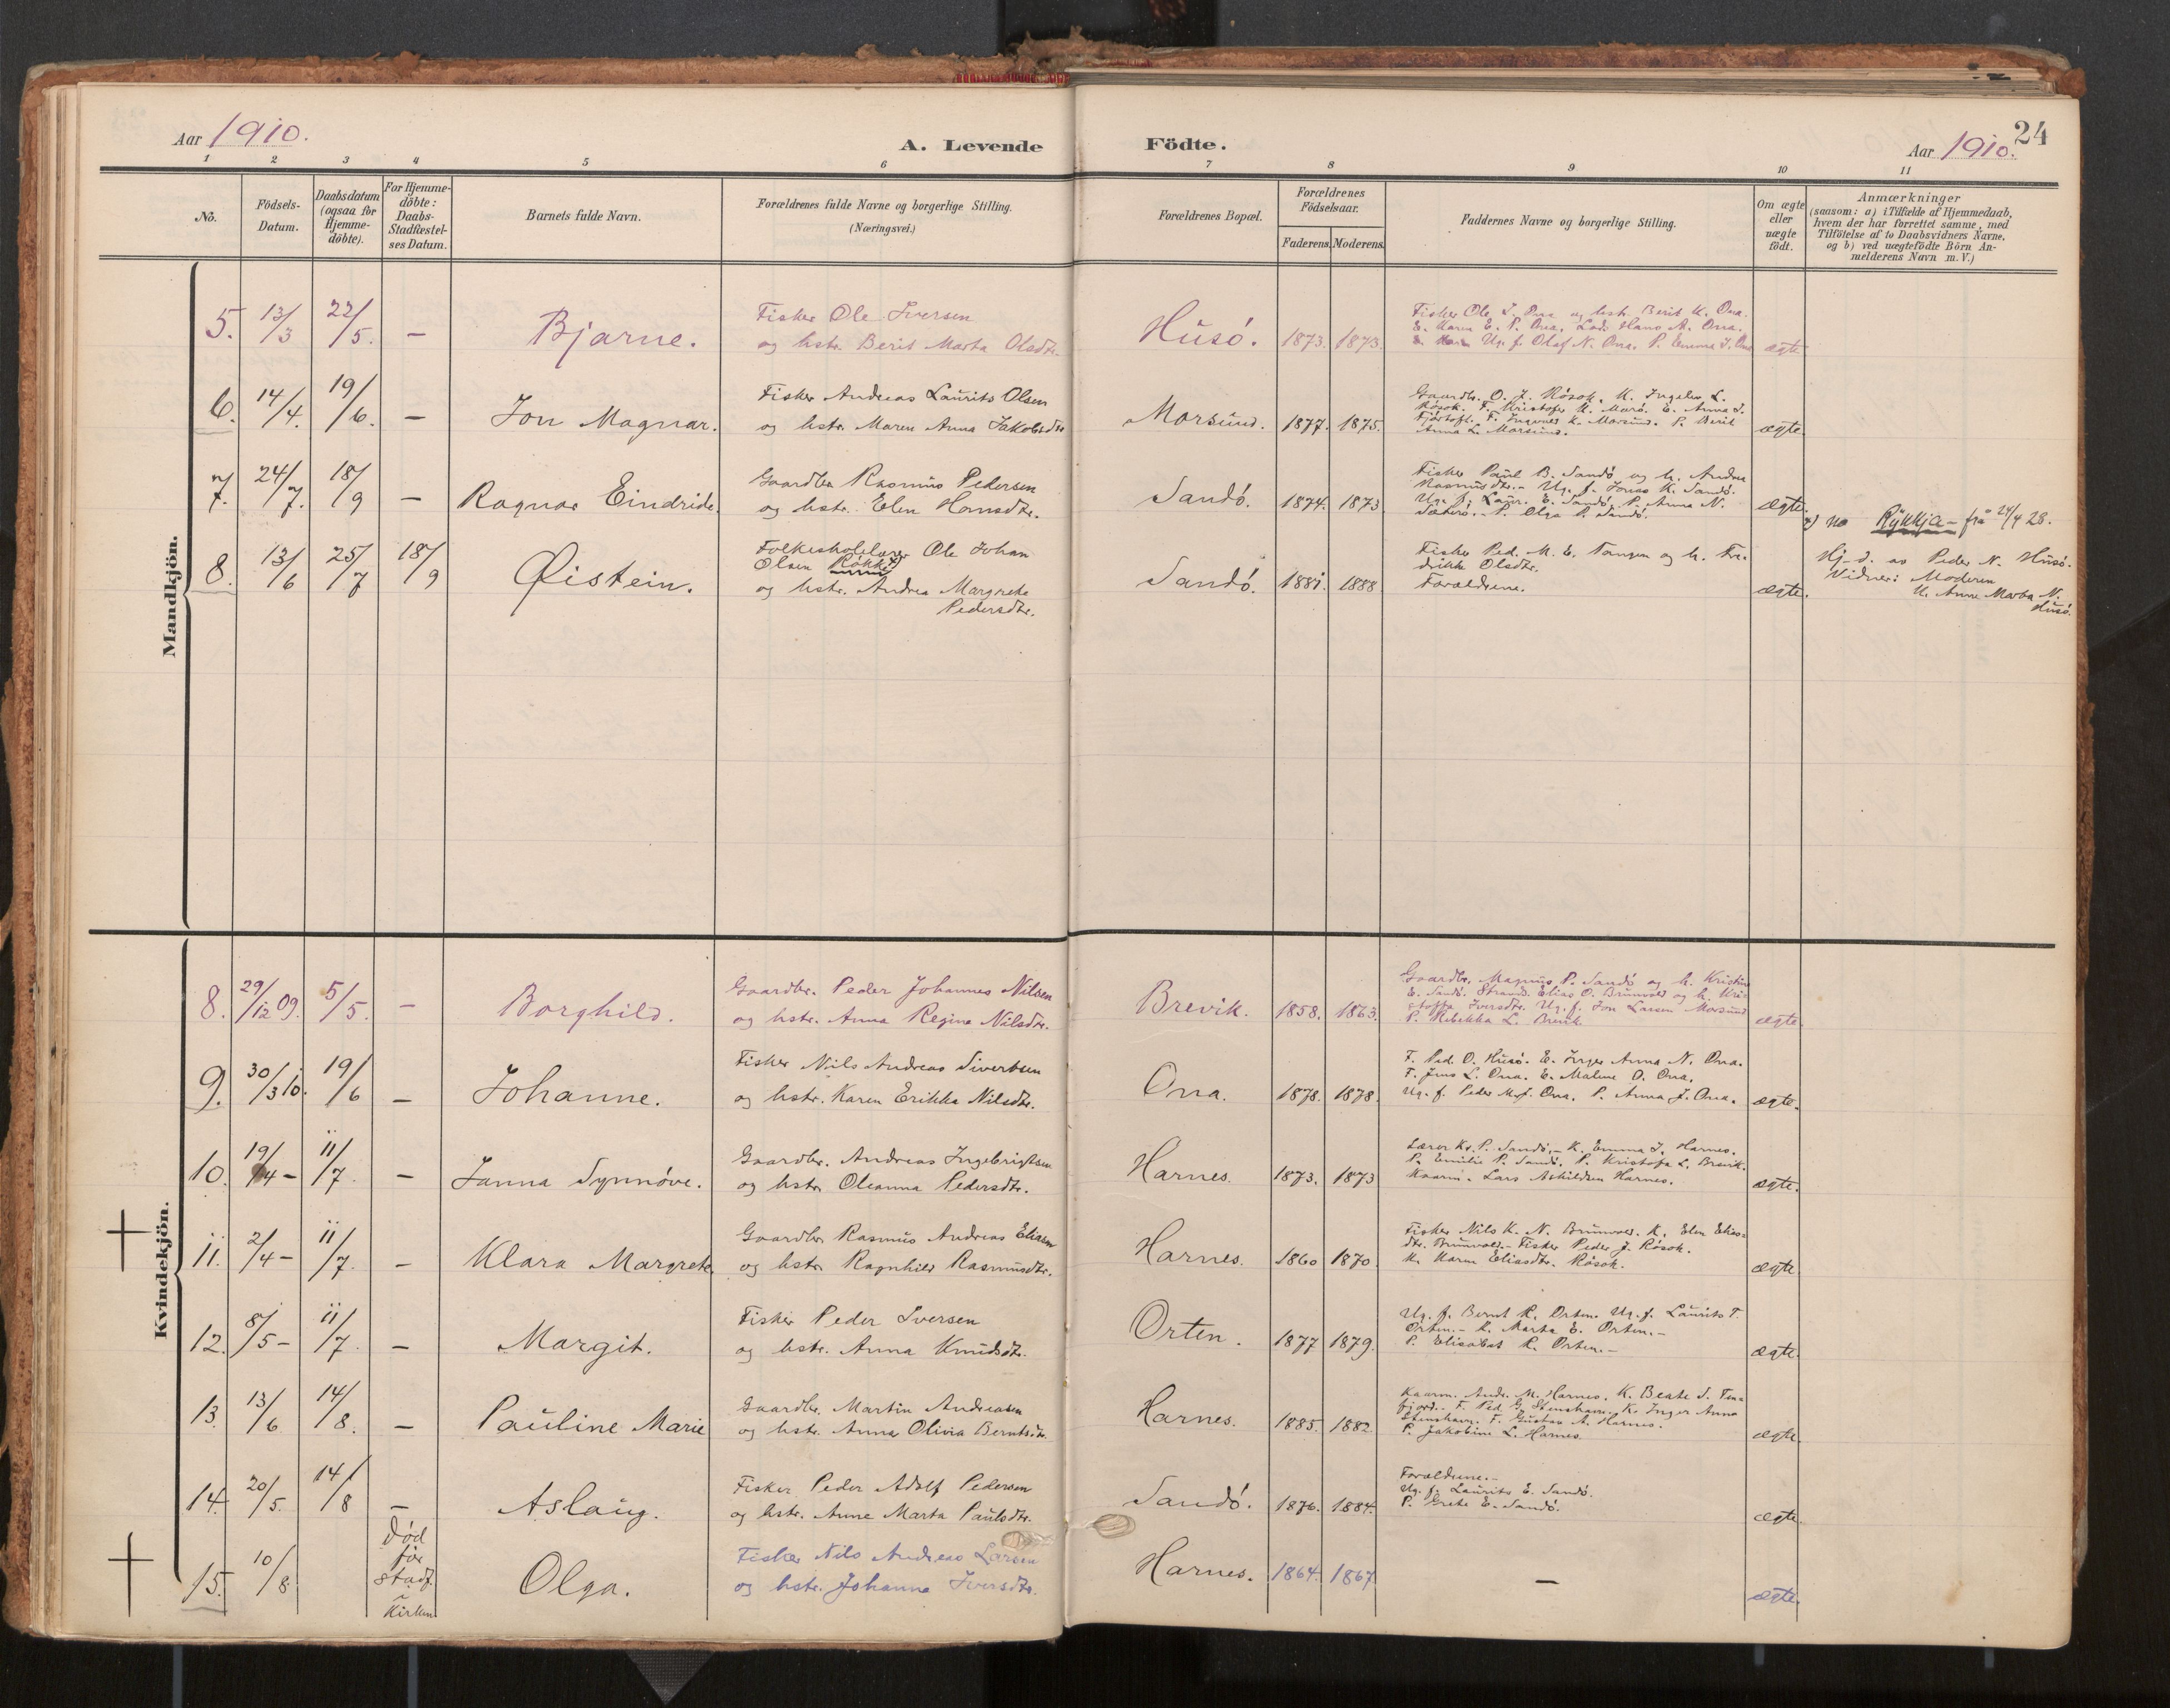 Aar 1910.
A. Levende Födte.
Aar 1910. 24
1 2 3 4 5 6 7 8 9 10 11
No.
Födsels-
Datum.
Daabsdatum
(ogsaa for
Hjemme-
döbte).
For Hjemme-
döbte:
Daabs-
Stadfæstel-
ses Datum.
Barnets fulde Navn.
Forældrenes fulde Navne og borgerlige Stilling.
(Næringsvei.)
Forældrenes Bopæl.
Forældrenes
Födselsaar.
Faderens. Moderens.
Faddernes Navne og borgerlige Stilling.
Om ægte
eller
uægte
födt.
Anmærkninger
(saasom: a) i Tilfælde af Hjemmedaab,
hvem der har forrettet samme, med
Tilföielse af to Daabsvidners Navne,
og b) ved uægtefödte Börn An-
melderens Navn m. V.)
Mandkjön.
5. 13/3 22/5. – Bjarne.
Fisker Ole Iversen
og hstr. Berit Marta Olsdtr.
Husó. 1873. 1873.
Fisker Ole I. Ona og hstr. Berit K. Ona.
E. Karen E. N. Ona. Lods Hans M. Ona.
Ug. f. Olaf N. Ona. P. Emma I. Ona
ægte.
6. 14/4. 19/6. – Jon Magnar.
Fisker Andreas Laurits Olsen
og hstr. Maren Anna Jakobsdtr
Morsund. 1877. 1875.
Gaardbr. O. J. Rósok. K. Ingeborg L.
Rósok. F. Kristofer K. Maró. E. Anna I.
Fjórtoft. F. Ingvald K. Morsund. P. Berit
Anna L. Morsund.
ægte.
7. 24/7. 18/9 – Ragnar Eindride.
Gaardbr Rasmus Pedersen
og hstr. Elen Hansdtr.
Sandó. 1874. 1873
Fisker Paul B. Sandó og h. Andrea
Rasmusdtr. – Ug. f. Jonas K. Sandó.
Ug. f. Laur. E. Sandó. P. Anna N.
Sæteró. P. Olga P. Sandó.
ægte.
8. 13/6 25/7 18/9 Øistein.
Folkeskolelærer Ole Johan
Olsen Rókke
og hstr. Andrea Margrete
Pedersdtr.
Sandó. 1881. 1888
Fisker Ped. M. E. Tangen og h. Fre-
drikke Olsdtr.
Forældrene.
ægte.
no Rykkja – frå 24/4 28.
Hj-d. av Peder N. Husó.
Vidner: Moderen
K. Anne Marta N.
Husó.
Kvindekjön.
8. 29/12 09. 5/5. – Borghild.
Gaardbr. Peder Johannes Nilsen
og hstr. Anna Regine Nilsdtr.
Brevik. 1858. 1863.
Gaardbr. Magnus P. Sandó og h. Kristine
E. Sandó. Strands. Elias O. Brunvold og h. Kri-
stoffa Iversdtr. Ug. f. Jon Larsen Morsund
P. Rebekka L. Brevik
ægte.
9. 30/3 10. 19/6 – Johanne.
Fisker Nils Andreas Sivertsen
og hstr. Karen Erikka Nilsdtr.
Ona. 1878. 1878.
F. Ped. O. Husó. E. Inger Anna N. Ona.
F. Jens L. Ona. E. Malene O. Ona.
Ug. f. Peder M. J. Ona. P. Anna J. Ona.
ægte.
10. 19/4 – 11/7. – Janna Synnóve.
Gaardbr. Andreas Ingebrigtsen
og hstr Oleanna Pedersdtr.
Harnes. 1873. 1873
Lærer Kr. P. Sandó. – K. Emma I. Harnes.
P. Emilie P. Sandó. P. Kristofa L. Brevik.
Kaarm. Lars Askildsen Harnes.
ægte.
11. 2/4 – 11/7. – Klara Margrete.
Gaardbr Rasmus Andreas Eliasen
og hstr Ragnhild Rasmusdtr.
Harnes. 1860 1870
Fisker Nils K. N. Brunvold. K. Elen Elias-
dtr. Brunvold. – Fisker Peder J. Rósok.
K. Karen Eliasdtr. Rósok.
ægte.
12. 8/5 – 11/7. – Margit.
Fisker Peder Iversen
og hstr. Anna Knudsdtr.
Orten. 1877 1879.
Ug. f. Bernt K. Orten. Ug. f. Laurits T.
Orten. – K. Marta E. Orten. –
P. Elisabet K. Orten. –
ægte.
13. 13/6 14/8. – Pauline Marie
Gaardbr. Martin Andreasen
og hstr. Anna Olivia Berntsdtr.
Harnes. 1885. 1882.
Kaarm. Andr. M. Harnes. K. Beate S. Ten-
fjord. F. Ped. G. Stenshavn. K. Inger Anna
Stenshavn. F. Gustav A. Harnes.
P. Jakobine L. Harnes.
ægte.
14. 20/5. 14/8 – Aslaug.
Fisker Peder Adolf Pedersen
og hstr. Anne Marta Paulsdtr.
Sandó. 1876. 1884.
Forældrene. –
Ug. f. Laurits E. Sandó.
P. Grete E. Sandó.
ægte.
15. 10/8.
Død
før
stadf.
i
Kirken
Olga.
Fisker Nils Andreas Larsen
og hstr. Johanna Iversdtr.
Harnes. 1864. 1867 – ægte.